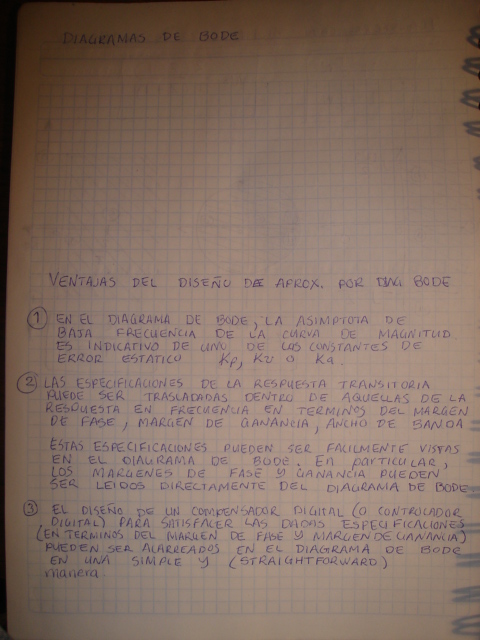 DIAGRAMAS DE BODE
VENTAJAS DEL DISEÑO DE APROX. POR DIAG BODE
1 EN EL DIAGRAMA DE BODE, LA ASIMPTOTA DE
BAJA FRECUENCIA DE LA CURVA DE MAGNITUD
ES INDICATIVO DE UNO DE LAS CONSTANTES DE
ERROR ESTATICO Kp, Kv o Ka.
2 LAS ESPECIFICACIONES DE LA RESPUESTA TRANSITORIA
PUEDE SER TRASLADADAS DENTRO DE AQUELLAS DE LA
RESPUESTA EN FRECUENCIA EN TERMINOS DEL MARGEN
DE FASE, MARGEN DE GANANCIA, ANCHO DE BANDA
ESTAS ESPECIFICACIONES PUEDEN SER FACILMENTE VISTAS
EN EL DIAGRAMA DE BODE. En PARTICULAR,
LOS MARGENES DE FASE Y GANANCIA PUEDEN
SER LEIDOS DIRECTAMENTE DEL DIAGRAMA DE BODE
3 EL DISEÑO DE UN COMPENSADOR DIGITAL (O CONTROLADOR
DIGITAL) PARA SATISFACER LAS DADAS ESPECIFICACIONES
(EN TERMINOS DEL MARGEN DE FASE Y MARGEN DE GANANCIA)
PUEDEN SER ALARREADOS EN EL DIAGRAMA DE BODE
EN UNA SIMPLE Y (STRAIGHTFORWARD)
manera.